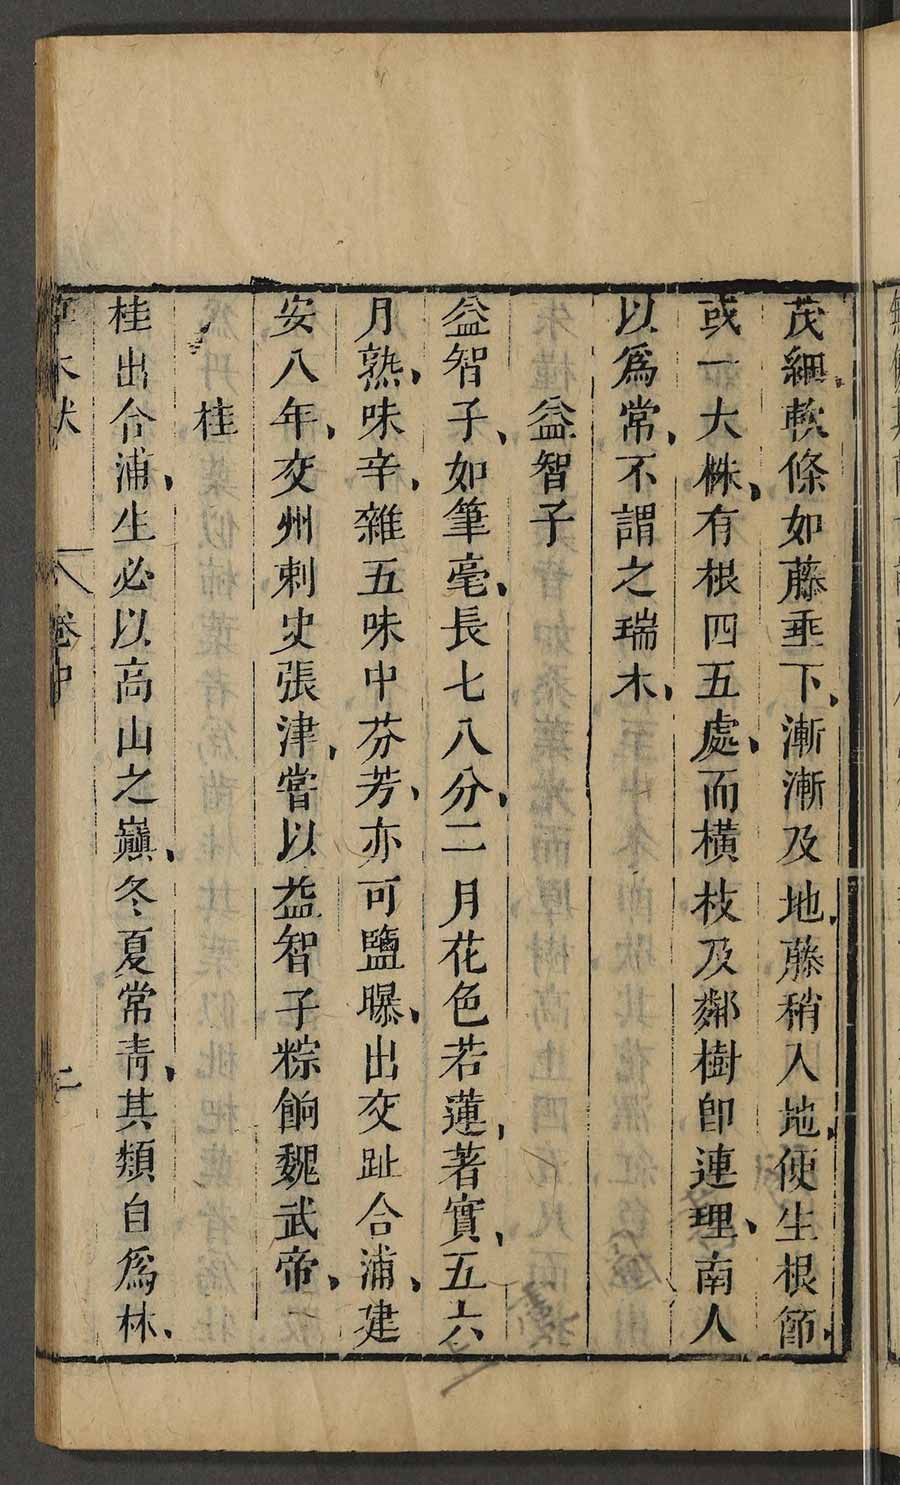 茂細軟條如藤垂下、漸漸及地、藤稍入地、便生根節、
或一大株、有根四五處、而橫枝及鄰樹卽連理、南人
以爲常、不謂之瑞木、
益智子
益智子、如筆毫、長七八分、二月花色若蓮、著實、五六
月熟、味辛、雜五味中芬芳、亦可鹽曝、出交趾合浦、建
安八年、交州刺史張津、嘗以益智子粽餉魏武帝、
桂
桂出合浦、生必以高山之巔、冬夏常青、其類自爲林、
草木狀 卷中 二